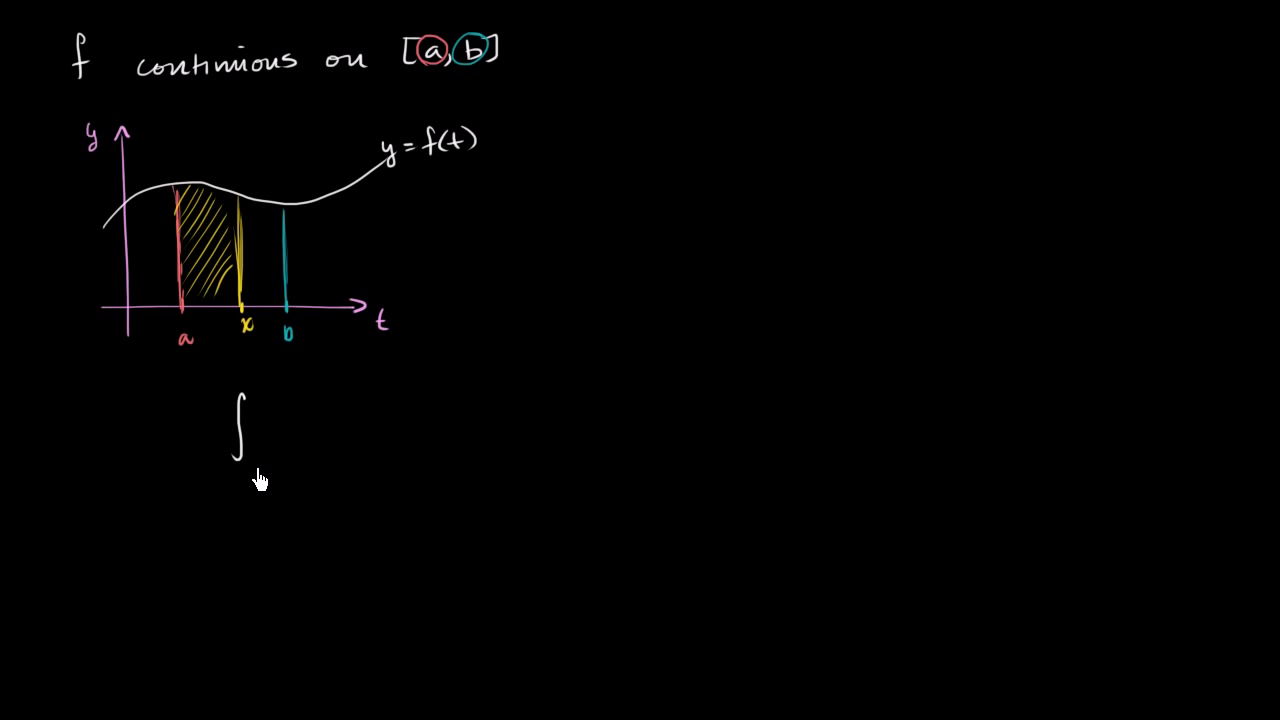 f continuous on [a,b]
y
y = f(t)
x
t
a
b
∫